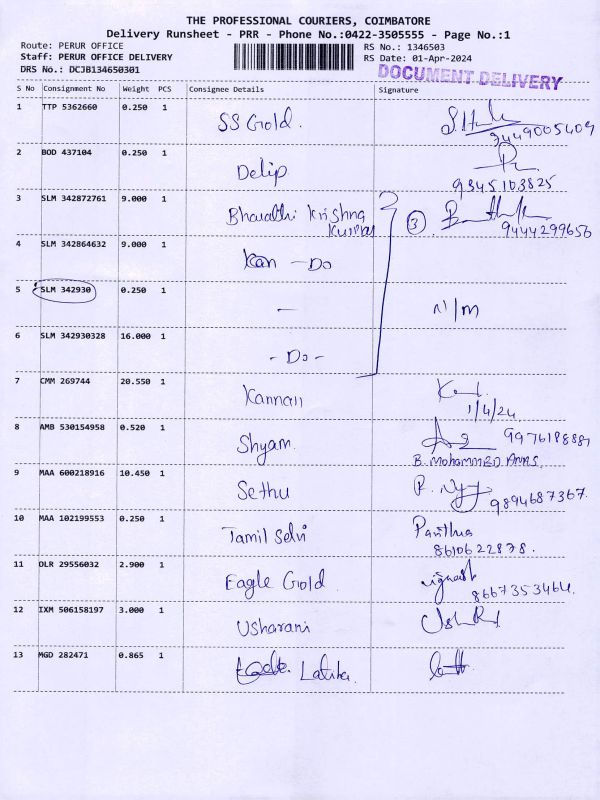 THE PROFESSIONAL COURIERS, COIMBATORE
Delivery Runsheet - PRR - Phone No.:0422-3505555 - Page No.:1
Route: PERUR OFFICE
Staff: PERUR OFFICE DELIVERY
DRS No.: DCJB134650301
RS No.: 1346503
RS Date: 01-Apr-2024
DOCUMENT DELIVERY
S No Consignment No Weight PCS Consignee Details Signature
1 TTP 5362660 0.250 1 SS Gold.
9449005409
2 BOD 437104 0.250 1 Delip
9345103825
3 SLM 342872761 9.000 1 Bharathi Krishna
Kumar
3
9444299656
4 SLM 342864632 9.000 1 - Do
5 SLM 342930 0.250 1 - N/M
6 SLM 342930328 16.000 1 - Do -
7 CMM 269744 20.550 1 Kannan
1/4/24
8 AMB 530154958 0.520 1 Shyam.
B. MOHAMMED ANAS.
9 MAA 600218916 10.450 1 Sethu
9894687367.
10 MAA 102199553 0.250 1 Tamil Selvi
8610622878.
11 OLR 29556032 2.900 1 Eagle Gold. vignesh
8667353464.
12 IXM 506158197 3.000 1 Usharani
13 MGD 282471 0.865 1 Latika.